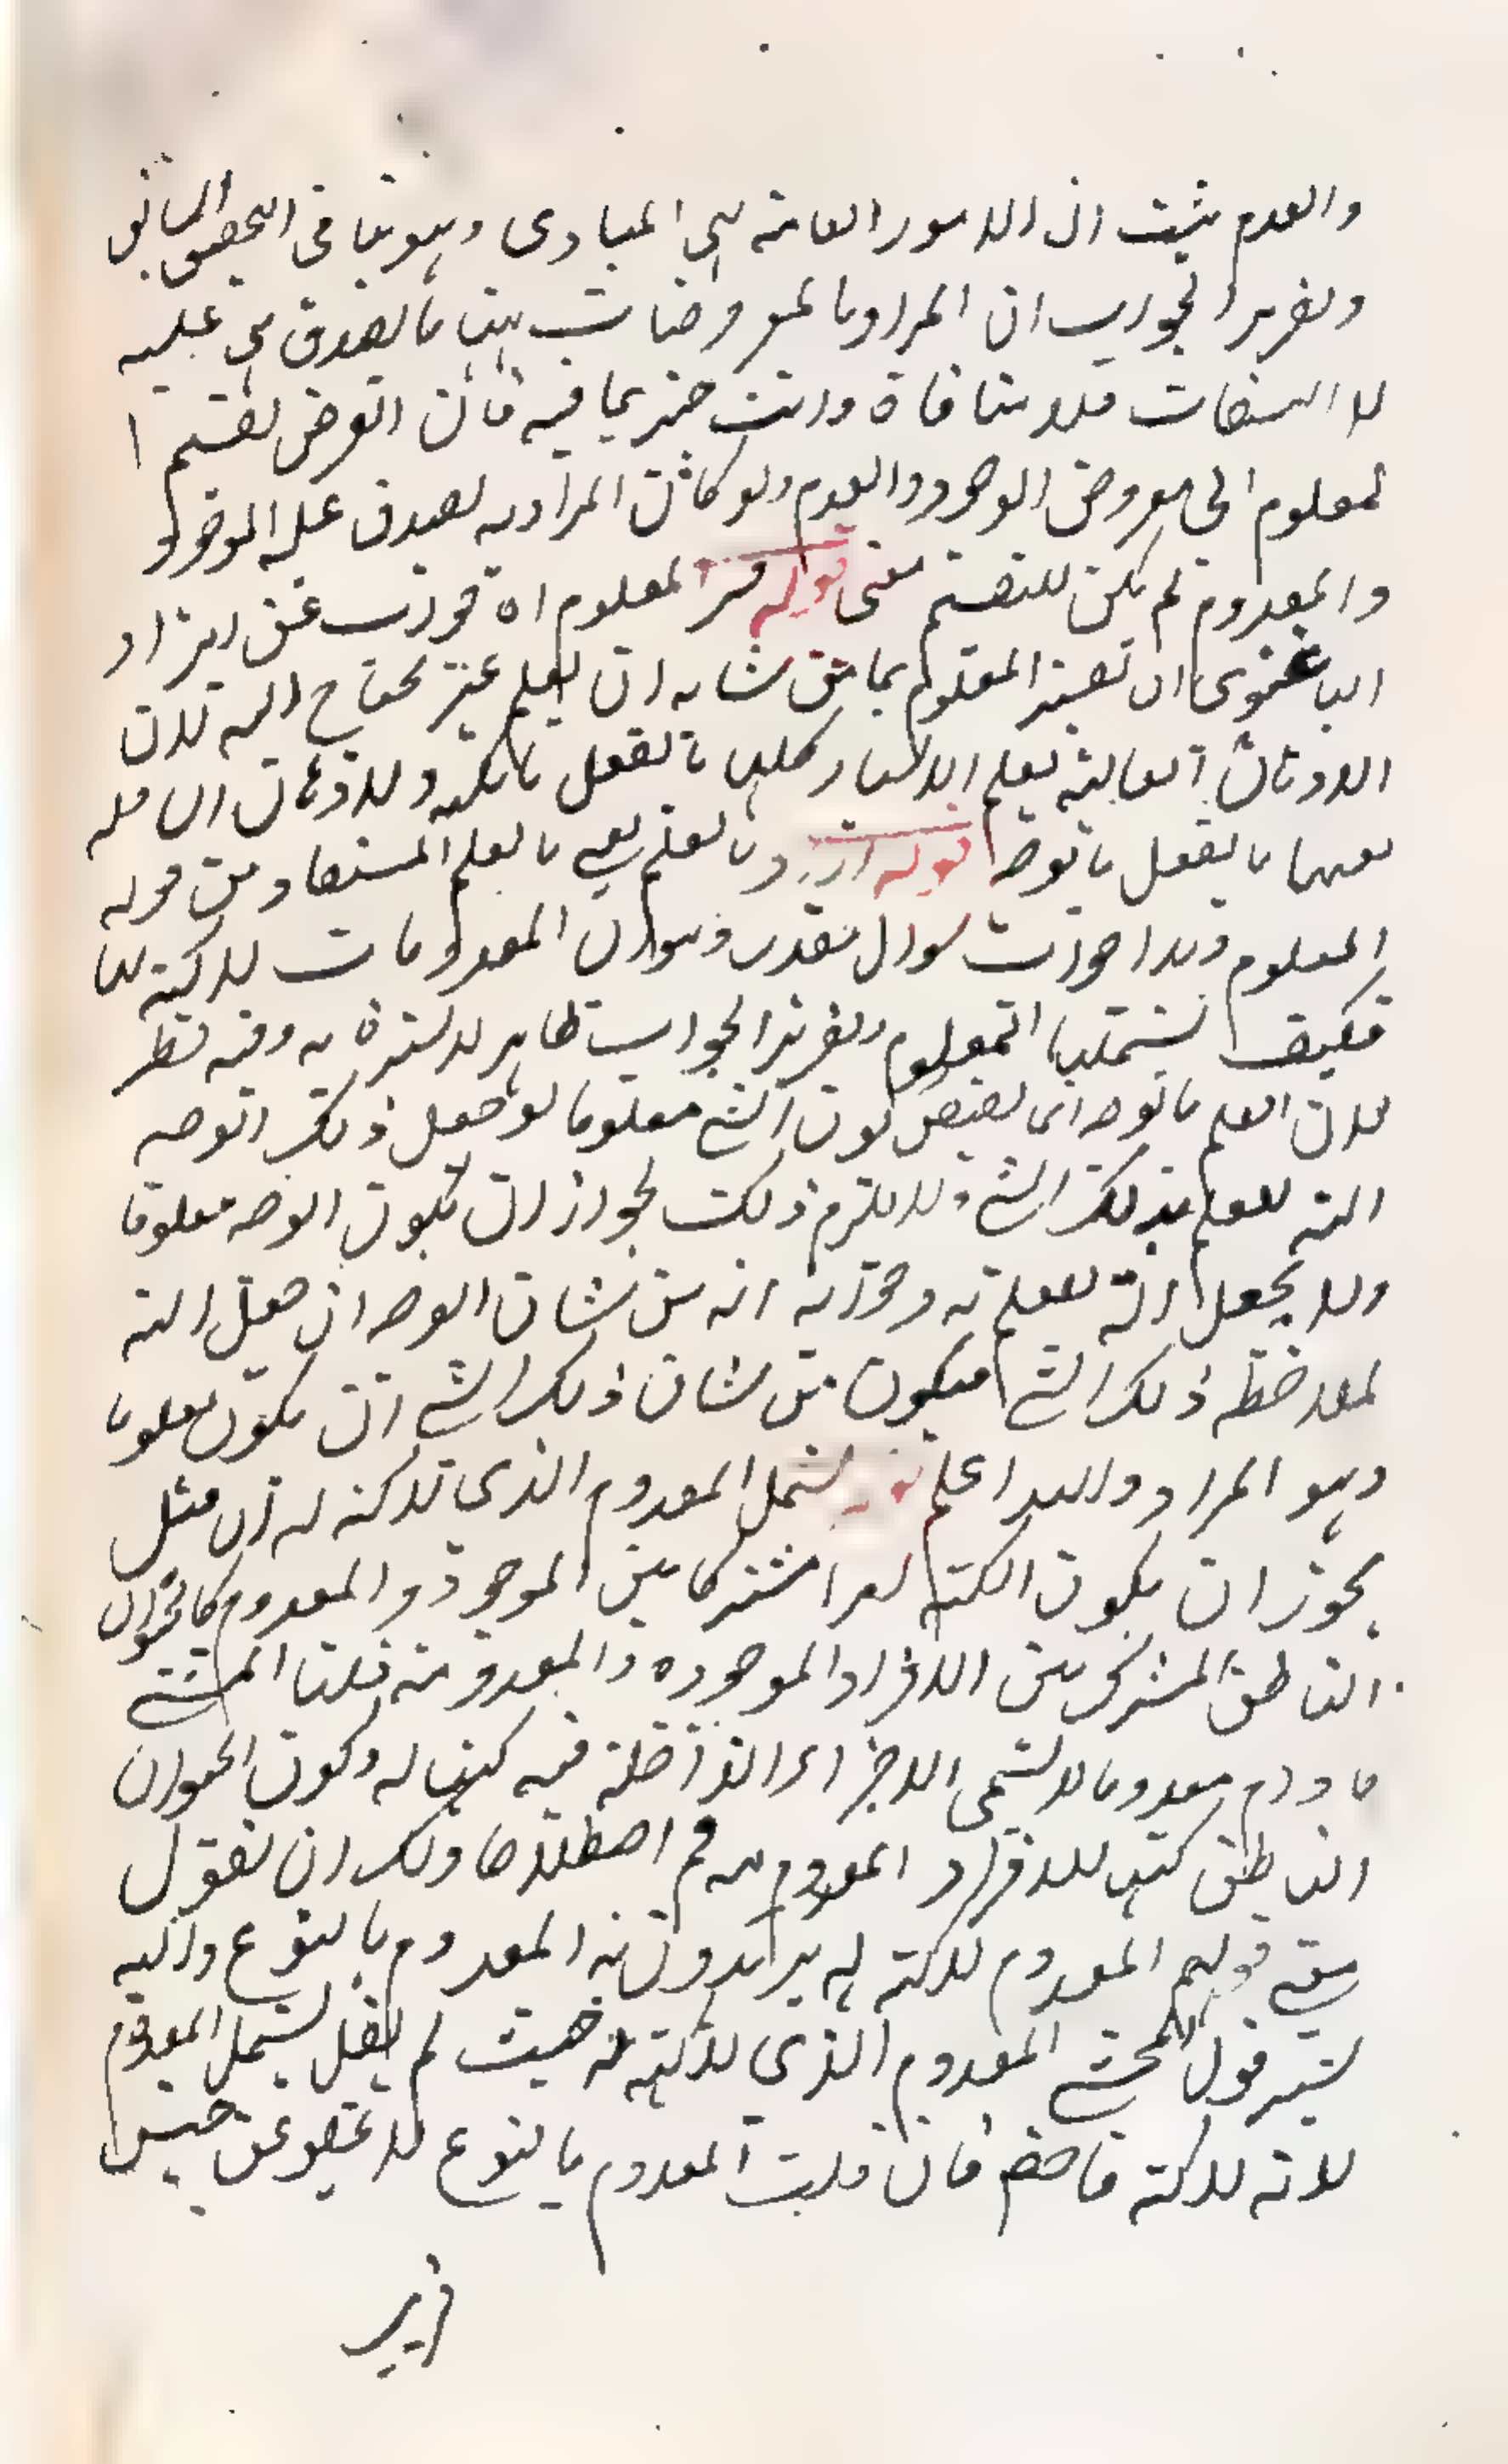 والعدم يثبت ان الامور العامة هي المبادى وهو ينافي التحقيق السابق
وتقرير الجواب ان المراد بالمعروضات هنا ما يصدق هي عليه
لا الصفات فلا منافاة وانت خبير بما فيه فان الغرض تقسيم ا
لمعلوم الى معروض الوجود والعدم ولو كان المراد به يصدق عليه الموجود
والمعدوم لم يكن للتقسيم معنى قوله فسر المعلوم اه جواب عن ايراد
الباغنوى ان تفسير المعلوم بما من شانه ان يعلم غير محتاج اليه لان
الاذهان العالية تعلم الاشياء كلها بالفعل بالكنه والاذهان السافلة
تعلمها بالفعل بالوجه قوله اراد بالعلم يعنى بالعلم المستفاد من قوله
المعلوم وهذا جواب سؤال مقدر وهو ان المعدومات لا كنه لها
فكيف يشتملها المعلوم وتقرير الجواب ظاهر لا سترة به وفيه نظر
لان العلم بالوجه انما يقتضى كون الشئ معلوما لو جعل ذلك الوجه
آلة للعلم بذلك الشئ ولا يلزم ذلك لجواز ان يكون الوجه معلوما
ولا يجعل آلة للعلم به وجوابه انه من شان الوجه ان جعل آلة
لملاحظة ذلك الشئ فيكون من شان ذلك الشئ ان يكون معلوما
وهو المراد والله اعلم قوله يشمل المعدوم الذى لا كنه له ان قيل
يجوز ان يكون الكنه امرا مشتركا بين الموجود والمعدوم كالحيوان
الناطق المشترك بين الافراد الموجودة والمعدومة قلنا الشئ
ما دام معدوما لا تسمى الاجزاء الداخلة فيه كنها له وكون الحيوان
الناطق كنها للافراد المعدومة اصطلاحا ولك ان تقول
معنى قولهم المعدوم لا كنه له يريدون به المعدوم بالنوع واليه
يشير قول المحشى المعدوم الذي لا كنه له حيث لم يقل يشمل المعدوم
لانه لا كنه له فاحفظ فان قلت المعدوم بالنوع لا يخلو عن جنس